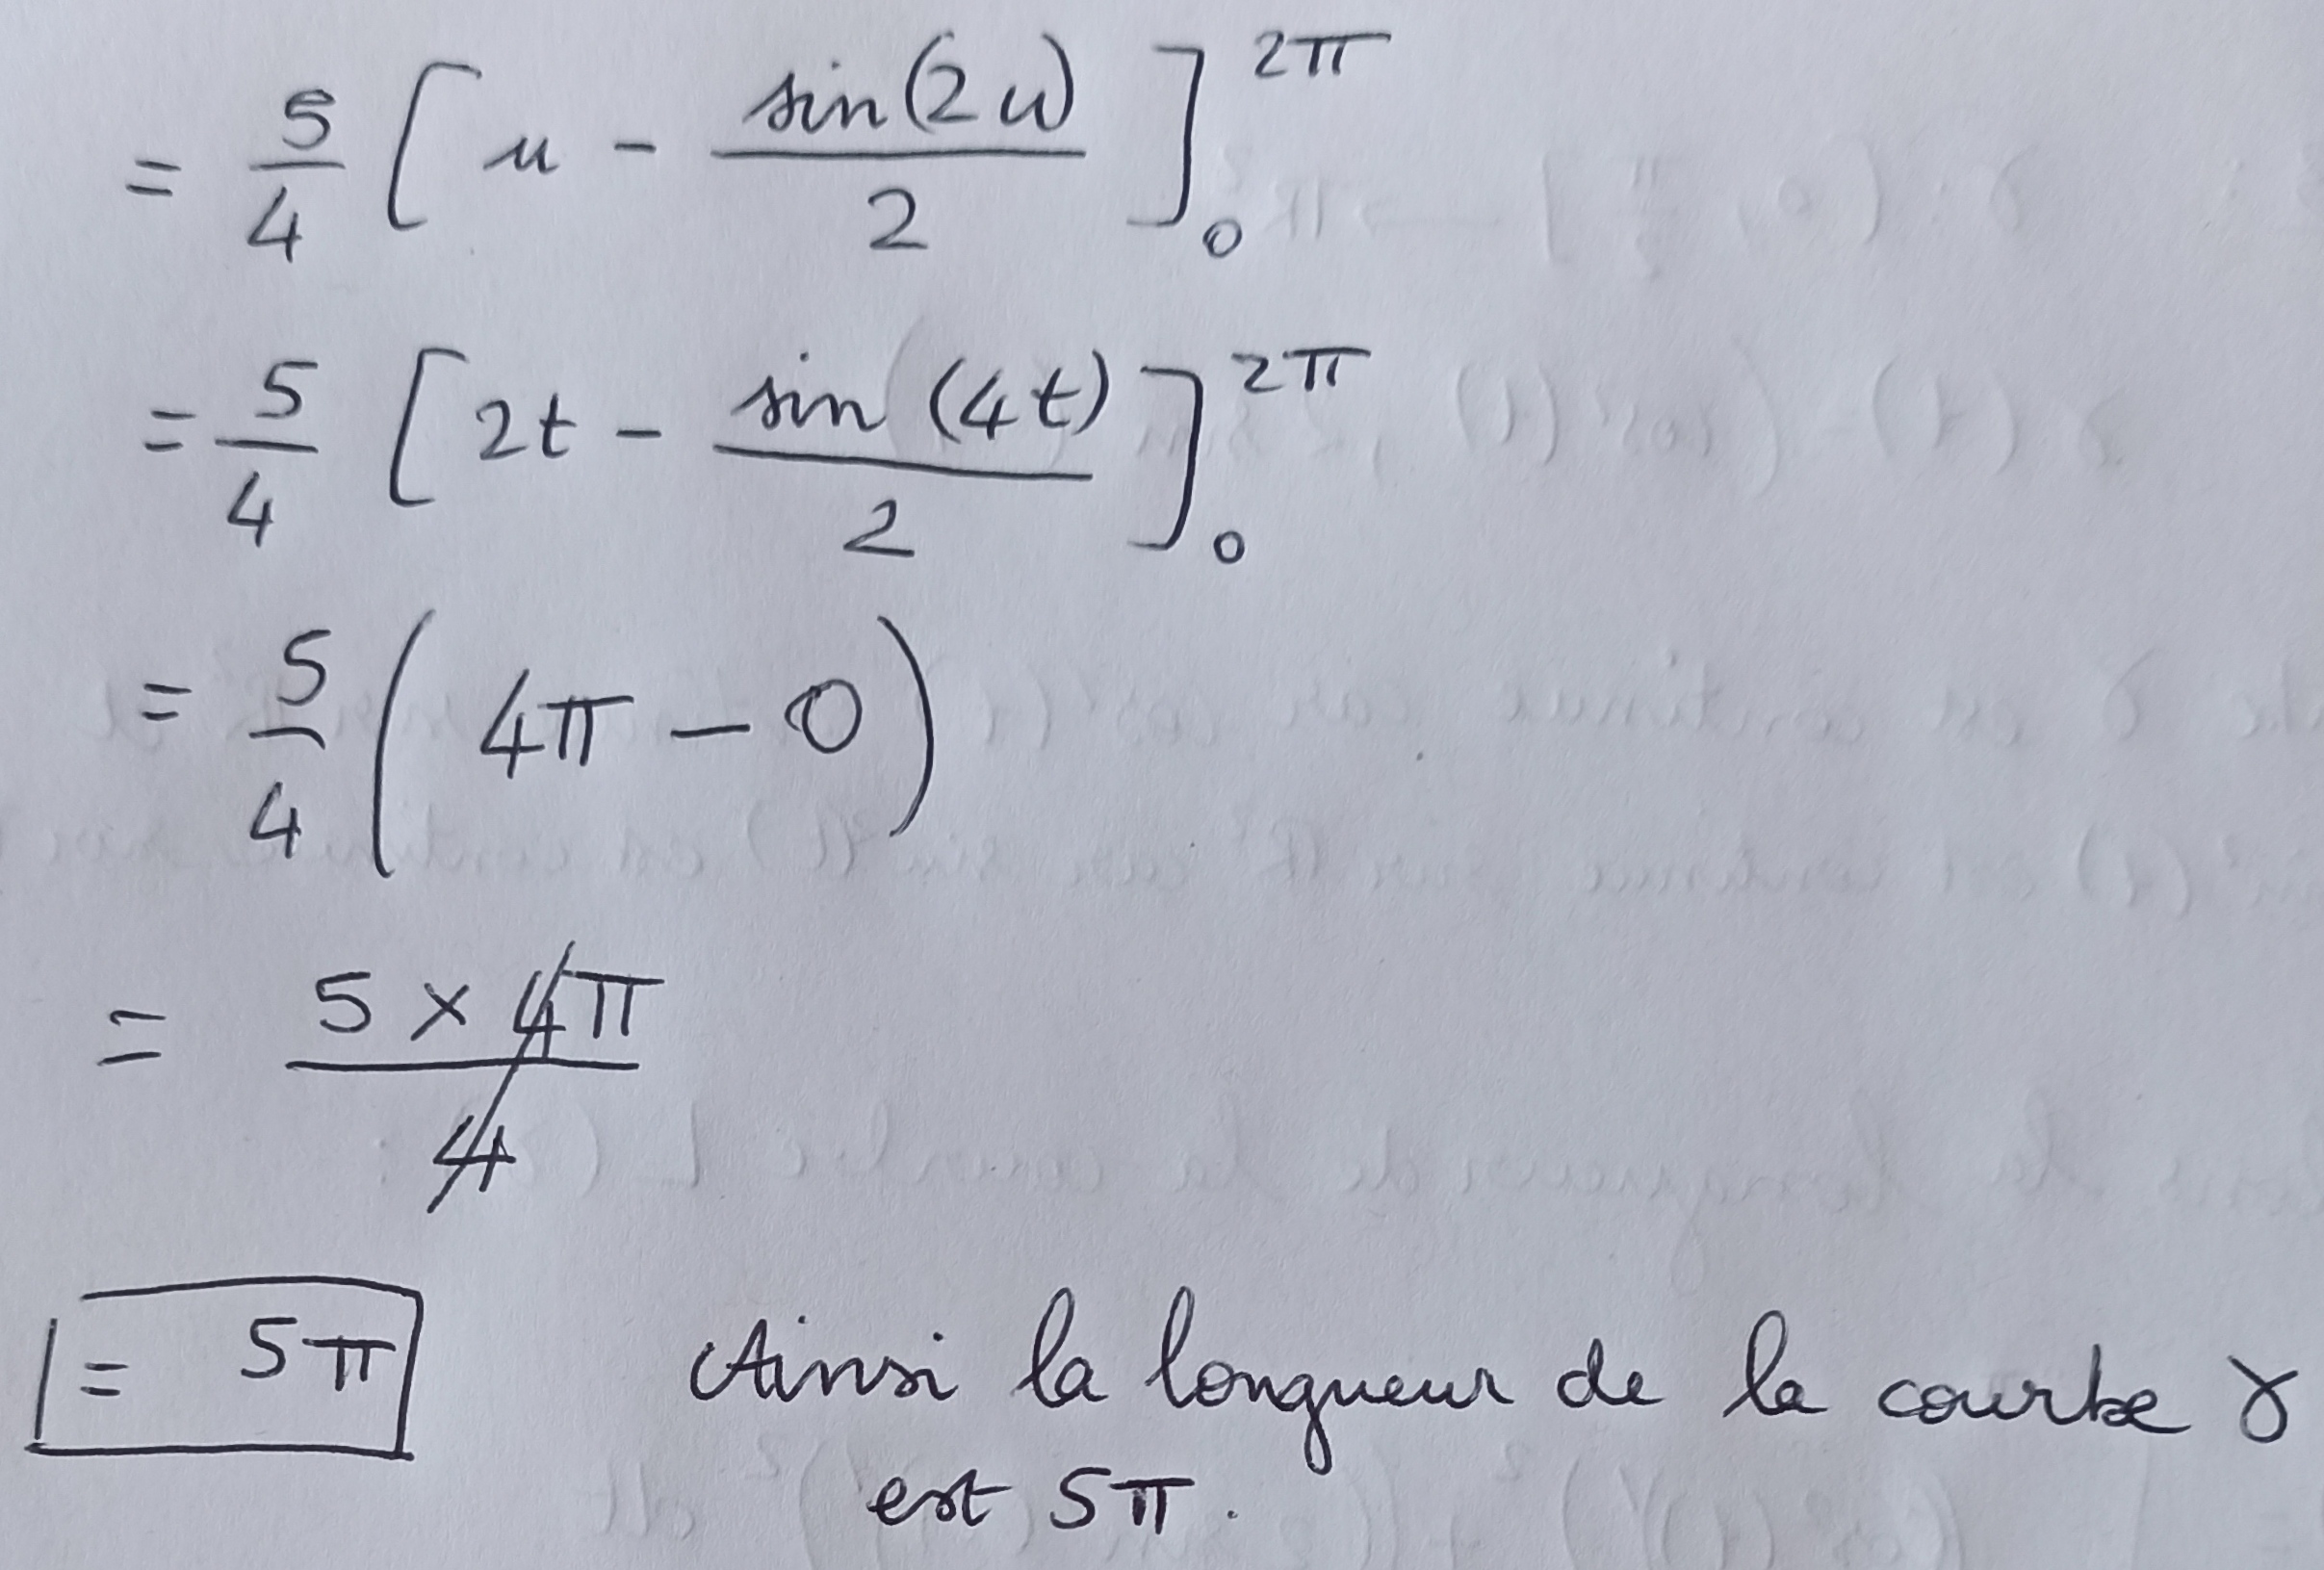 = 5/4 [ u - sin(2u)/2 ]₀^2π
= 5/4 [ 2t - sin (4t)/2 ]₀^2π
= 5/4 ( 4π - 0 )
= 5 × 4π / 4
= 5π
Ainsi la longueur de la courbe γ
est 5π.